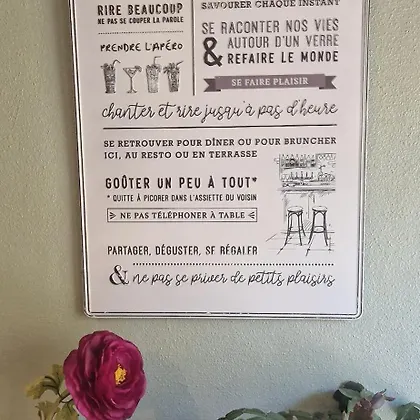 RIRE BEAUCOUP
NE PAS SE COUPER LA PAROLE
PRENDRE L'APÉRO
SAVOURER CHAQUE INSTANT
SE RACONTER NOS VIES
& AUTOUR D'UN VERRE
REFAIRE LE MONDE
SE FAIRE PLAISIR
chanter et rire jusqu'à pas d'heure
SE RETROUVER POUR DÎNER OU POUR BRUNCHER
ICI, AU RESTO OU EN TERRASSE
GOÛTER UN PEU À TOUT*
* QUITTE À PICORER DANS L'ASSIETTE DU VOISIN
NE PAS TÉLÉPHONER À TABLE
PARTAGER, DÉGUSTER, SE RÉGALER
& ne pas se priver de petits plaisirs